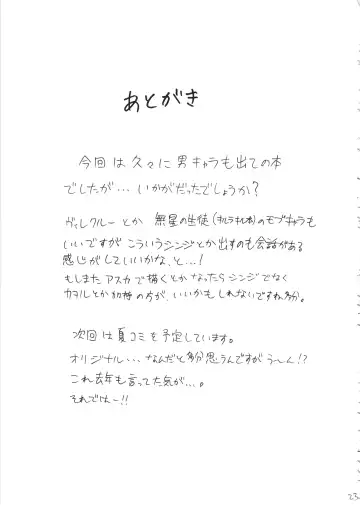 あとがき
今回は久々に男キャラも出ての本
でしたが…いかがだったでしょうか?
ヴィレクルーとか無星の生徒(キルラキル本)のモブキャラも
いいですがこういうシンジとか出すのも会話がある
感じがしていいかな、と…!
もしまたアスカで描くとかなったらシンジでなく
カヲルとか加持の方が、いいかもしれないですね多分。
次回は夏コミを予定しています。
オリジナル…なんだと多分思うんですがう〜ん!?
これ去年も言ってた気が…。
それではー!!
23